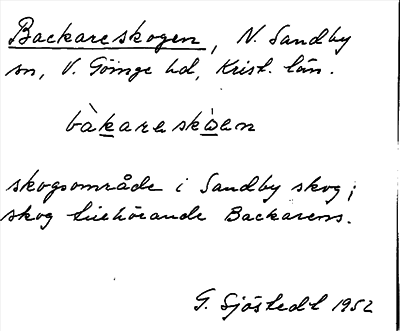 Backareskogen, N. Sandby
sn, V. Göinge hd, Krist. län.
bàkareskòen
skogsområde i Sandby skog;
skog tillhörande Backarens.
G. Sjöstedt 1952